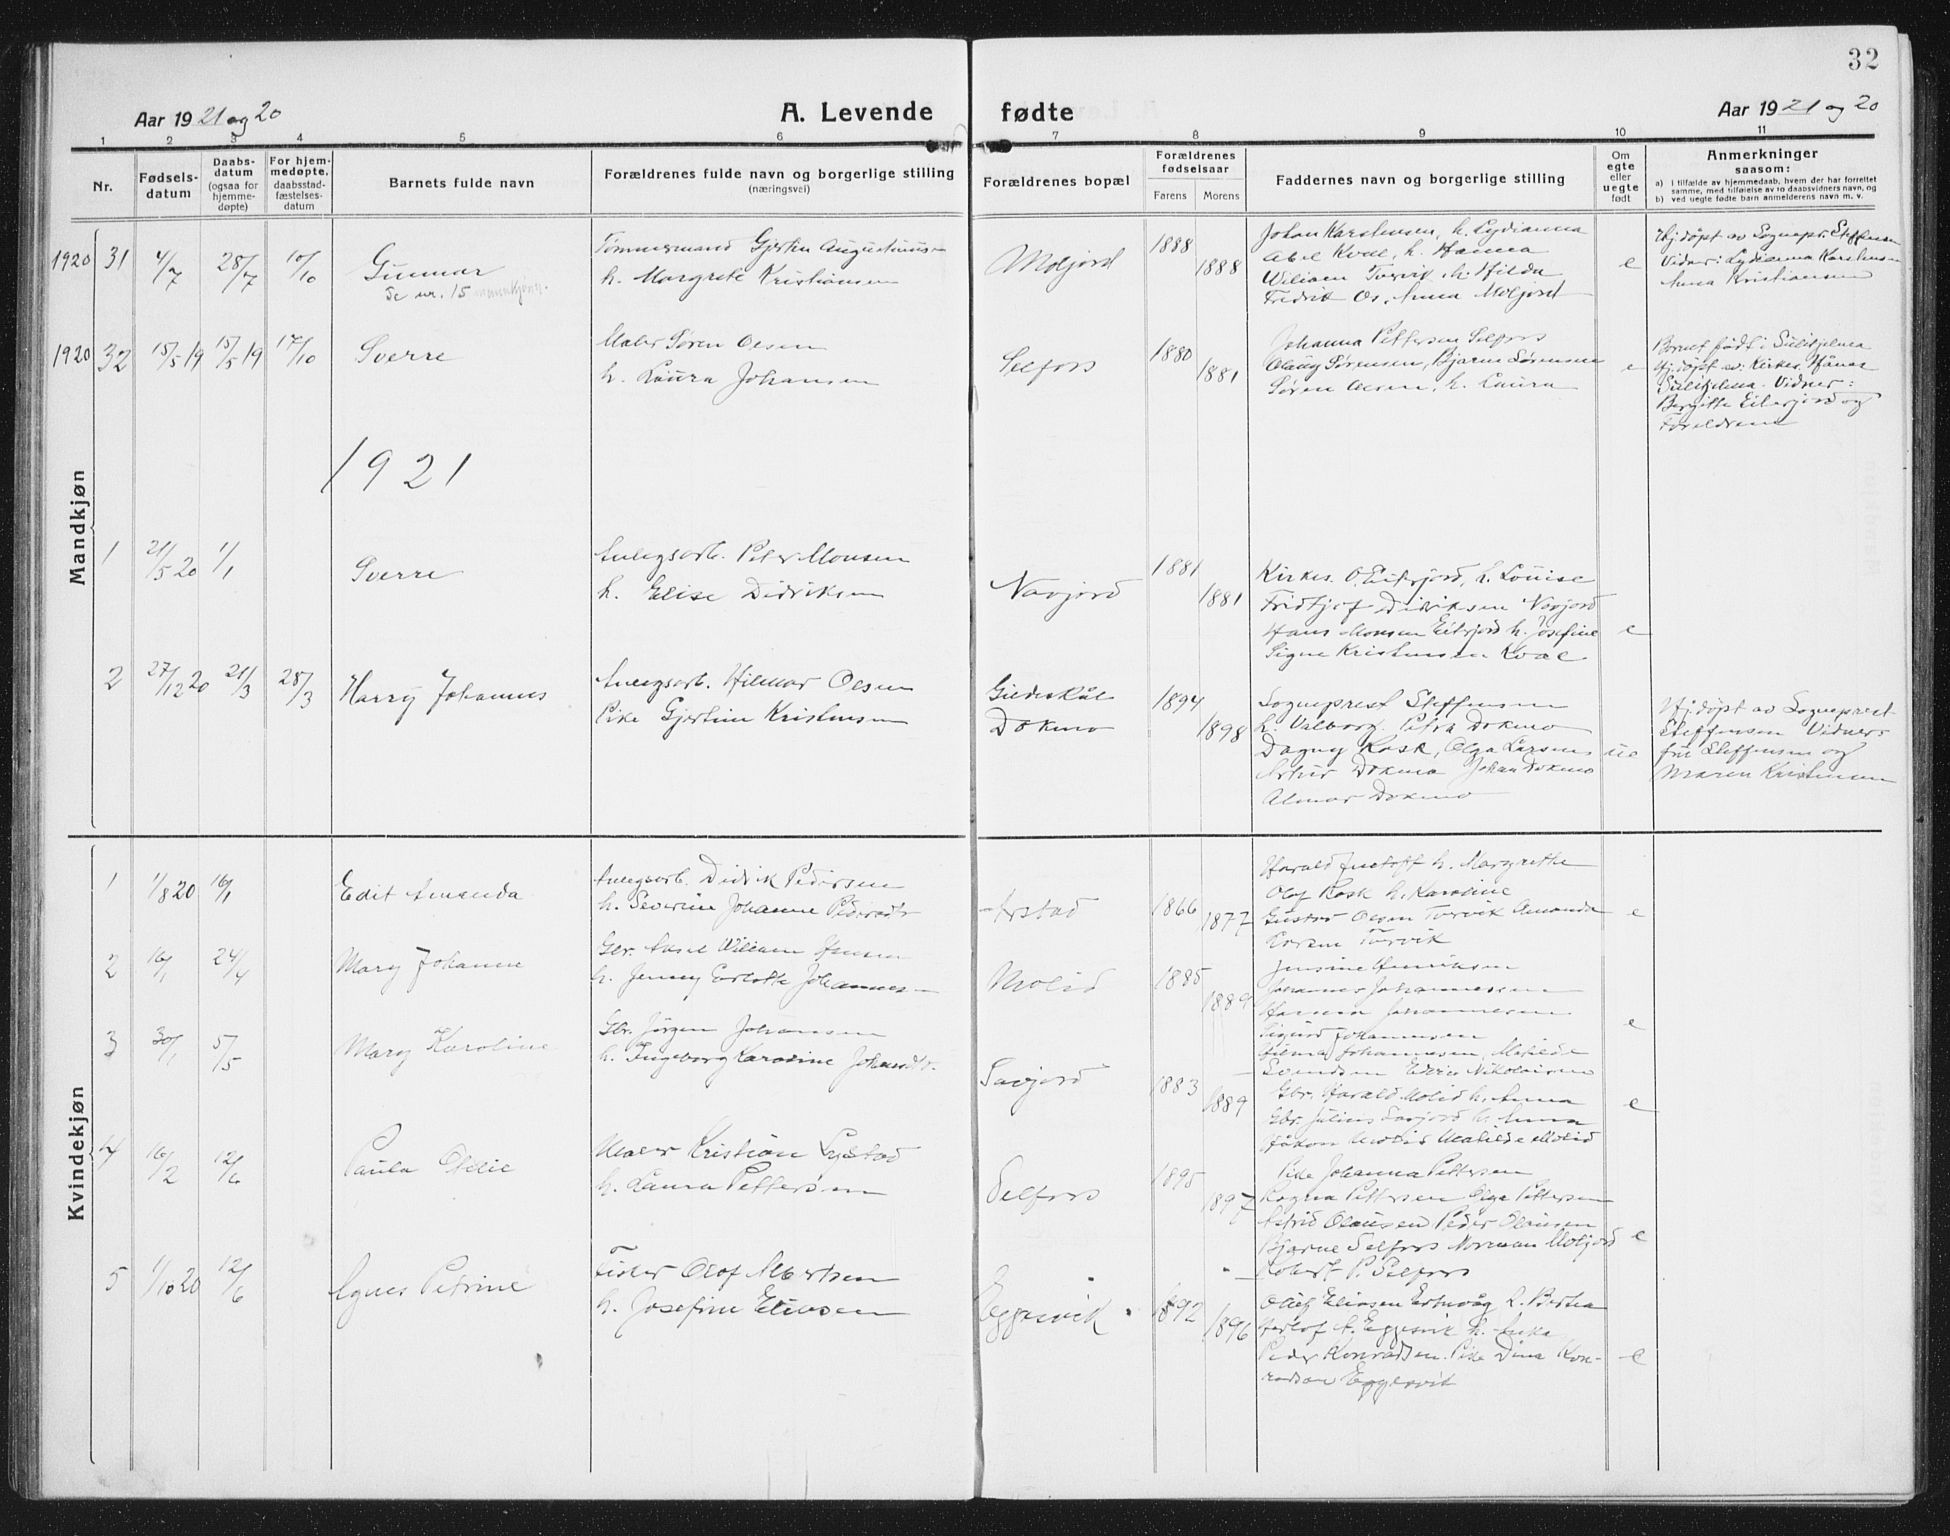 32
Aar 1921 og 20
A. Levende fødte
Aar 1921 og 20
1 2 3 4 5 6 7 8 9 10 11
Nr.
Fødsels-
datum
Daabs-
datum
(ogsaa for
hjemme-
døpte)
For hjem-
medøpte,
daabsstad-
fæstelses-
datum
Barnets fulde navn
Forældrenes fulde navn og borgerlige stilling
(næringsvei)
Forældrenes bopæl
Forældrenes
fødselsaar
Farens Morens
Faddernes navn og borgerlige stilling
Om
egte
eller
uegte
født
Anmerkninger
saasom:
a) i tilfælde av hjemmedaab, hvem der har forrettet
samme, med tilføielse av to daabsvidners navn, og
b) ved uegte fødte barn anmelderens navn m. v.
Mandkjøn
1920 31 4/7 28/7 10/10
Gunnar
Se nr. 15 mannkjønn.
Tømmermand Gjerlu Augustinus-
h. Margrete Kristiansen
Moljord
1888
1888
Johan Karstensen, h. Lydianna
Abel Kval, h. Hanna
Wiliam Torvik, h. Hilda
Fredrik Os, Anna Moljord
e
Hj.døpt av Sognepr. Steffensen
Vidner: Lydianna Karstensen
Anna Kristiansen
1920 32 15/5 19 15/5 19 17/10
Sverre
Maler Søren Olsen
h. Laura Johansen
Selfors
1880
1881
Johanna Pettersen Selfors
Olaug Sørensen, Bjarne Sørensen
Søren Olsen, h. Laura
e
Barnet født i Sulitjelma
Hj.døpt av Kirkes. Hånes
Sulitjelma. Vidner:
Bergitte Eiterjord og
Foreldrene
1921
1 21/5 20 1/1
Sverre
Anlegsarb. Peter Monsen
h. Elise Didriksen
Navjord
1881
1881
Kirkes. O. Eiterjord, h. Louise
Fridtjof Didriksen Navjord
Hans Monsen Eiterjord h. Josefine
Signe Kristensen Kval
e
2 27/12 20 21/3 28/3
Harry Johannes
Anlegsarb. Hilmar Olsen
Pike Gjertine Kristensen
Gildeskål
Dokmo
1894
1898
Sogneprest Steffensen
h. Valborg. Petra Dokmo
Dagny Rask, Olga Larsen
Artur Dokmo Johan Dokmo
Almar Dokmo
ue
Hj.døpt av Sogneprest
Steffensen Vidner
fru Steffensen og
Maren Kristensen
Kvindekjøn
1 1/8 20 16/1
Edit Amanda
Anlegsarb. Didrik Pedersen
h. Severine Johanne Pedersdtr
Arstad
1866
1877
Harald Justoff h. Margrethe
Olaf Rask h. Karoline
Gustav Olsen Torvik Amanda
Karen Torvik
e
2 16/1 24/4
Mary Johanne
Gbr. Aksel Wiliam Hansen
h. Jenny Exlotte Johannes-
Molid
1885
1889
Jensine Henriksen
Johannes Johannessen
Hanna Johannesen
Sigurd Johannesen
Hilma Johannesen, Matilde
Svendsen Edvin Nikolaisen
e
3 30/1 5/5
Mary Karoline
Gbr. Jørgen Johansen
h. Ingeborg Karoline Johansdtr.
Savjord
1883
1889
Gbr. Harald Molid h. Anna
Gbr. Julius Savjord h. Anna
Håkon Molid Matilde Molid
e
4 16/2 12/6
Paula Otelie
Maler Kristian Lystad
h. Laura Pettersen
Selfors
1895
1897
Pike Johanna Pettersen
Ragna Pettersen Olga Pettersen
Astrid Olausen Peder Olausen
Bjarne Selfors Norman Moljord
Robert P. Selfors
e
5 1/10 20 12/6
Agnes Petrine
Fisker Olof Albertsen
h. Josefine Eliasen
Eggesvik
1892
1896
Oluf Eliasen Ertnvåg h. Bertea
Herlof A. Eggesvik h. Anka
Peder Konradsen. Pike Dina Kon-
radsen Eggesvik
e